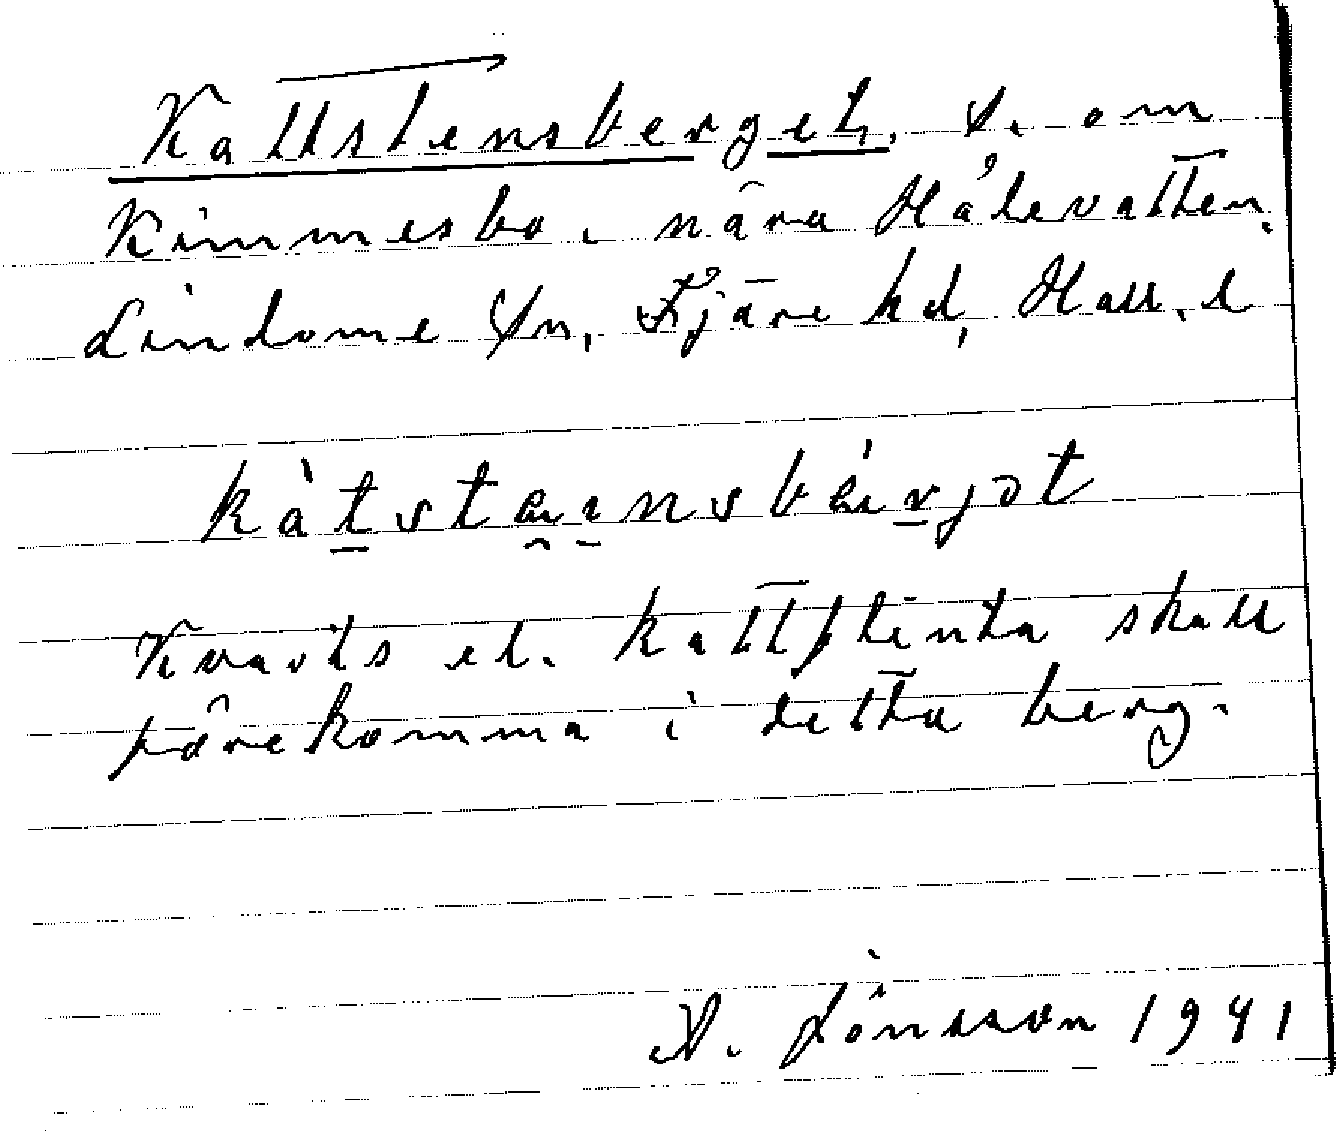 Kattstensberget, S. om
Kimmesbo, nära Hålevatten,
Lindome Sn, Fjäre hd, Hall. l
kàtstæinsbæ̀rjət
Kvarts el. kattflinta skall
förekomma i detta berg.
A. Jönsson 1941